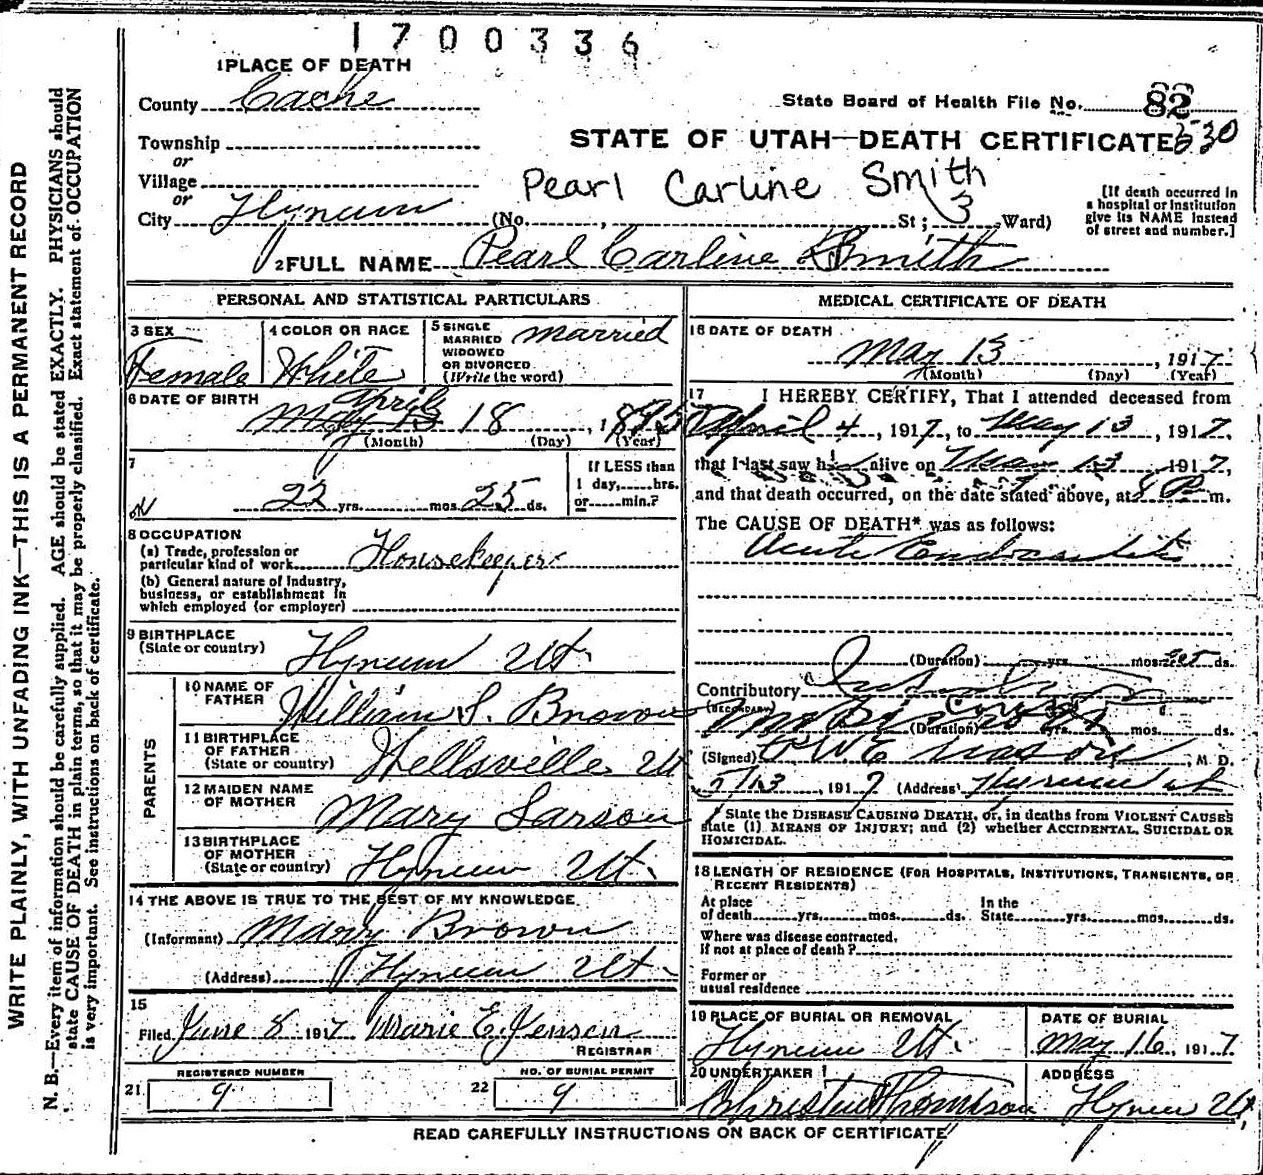 1700336
1 PLACE OF DEATH
County Cache
State Board of Health File No. 82
Township
or
STATE OF UTAH—DEATH CERTIFICATE 530
Village
or
Pearl Carline Smith
[If death occurred in
a hospital or institution
give its NAME instead
of street and number.]
City Hyrum (No. , St; 3 Ward)
2 FULL NAME Pearl Carline Smith
PERSONAL AND STATISTICAL PARTICULARS
3 SEX
Female
4 COLOR OR RACE
White
5 SINGLE
MARRIED
WIDOWED
OR DIVORCED
(Write the word)
married
6 DATE OF BIRTH
April
May 13 18, 1895
(Month) (Day) (Year)
7
22 yrs. mos. 25 ds.
If LESS than
1 day, hrs.
or min.?
8 OCCUPATION
(a) Trade, profession or
particular kind of work Housekeeper
(b) General nature of industry,
business, or establishment in
which employed (or employer)
9 BIRTHPLACE
(State or country) Hyrum Ut.
PARENTS
10 NAME OF
FATHER William S. Brown
11 BIRTHPLACE
OF FATHER
(State or country) Wellsville Ut
12 MAIDEN NAME
OF MOTHER Mary Larson
13 BIRTHPLACE
OF MOTHER
(State or country) Hyrum Ut.
14 THE ABOVE IS TRUE TO THE BEST OF MY KNOWLEDGE
(Informant) Mary Brown
(Address) Hyrum Ut.
15
Filed June 8 1917 Marie E. Jensen
REGISTRAR
21 REGISTERED NUMBER
9
22 NO. OF BURIAL PERMIT
9
MEDICAL CERTIFICATE OF DEATH
16 DATE OF DEATH
May 13, 1917
(Month) (Day) (Year)
17 I HEREBY CERTIFY, That I attended deceased from
April 4, 1917, to May 13, 1917,
that I last saw h alive on May 13, 1917,
and that death occurred, on the date stated above, at 8 P m.
The CAUSE OF DEATH* was as follows:
Acute Endocarditis
(Duration) yrs. mos. ds.
Contributory
(SECONDARY)
(Duration) yrs. mos. ds.
(Signed) , M. D.
5/13, 1917 (Address) Hyrum Ut
State the DISEASE CAUSING DEATH, or, in deaths from VIOLENT CAUSES
state (1) MEANS OF INJURY; and (2) whether ACCIDENTAL, SUICIDAL OR
HOMICIDAL.
18 LENGTH OF RESIDENCE (FOR HOSPITALS, INSTITUTIONS, TRANSIENTS, OR
RECENT RESIDENTS)
At place
of death yrs. mos. ds.
In the
State yrs. mos. ds.
Where was disease contracted,
if not at place of death?
Former or
usual residence
19 PLACE OF BURIAL OR REMOVAL
Hyrum Ut.
DATE OF BURIAL
May 16, 1917
20 UNDERTAKER
Thompson
ADDRESS
Hyrum Ut,
READ CAREFULLY INSTRUCTIONS ON BACK OF CERTIFICATE
WRITE PLAINLY, WITH UNFADING INK—THIS IS A PERMANENT RECORD
N. B.—Every item of information should be carefully supplied. AGE should be stated EXACTLY. PHYSICIANS should
state CAUSE OF DEATH in plain terms, so that it may be properly classified. Exact statement of OCCUPATION
is very important. See instructions on back of certificate.